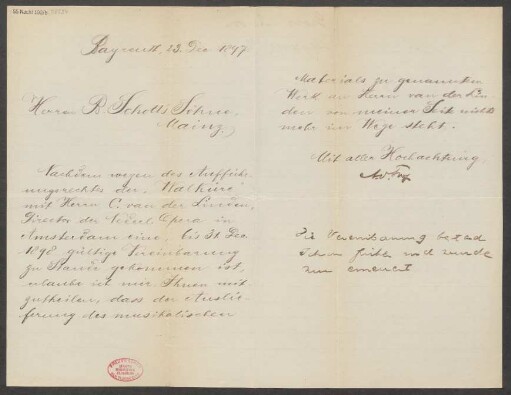 Bayreuth, 23. Dec 1897
Herrn B. Schott's Söhne
Mainz
Nachdem wegen des Aufführ-
ungsrechtes der "Walküre"
mit Herrn C. van der Linden,
Director der Nederl. Opera in
Amsterdam eine, bis 31 Dec
1898 gültige Vereinbarung
zu Stande gekommen ist,
erlaube ich mir Ihnen mit
zutheilen, dass der Auslie-
ferung des musikalischen
Materials zu genanntem
Werk an Herrn van der Lin-
den von meiner Seite nichts
mehr im Wege steht.
Mit aller Hochachtung
Die Vereinbarung bestand
schon früher und wurde
nur erneuert